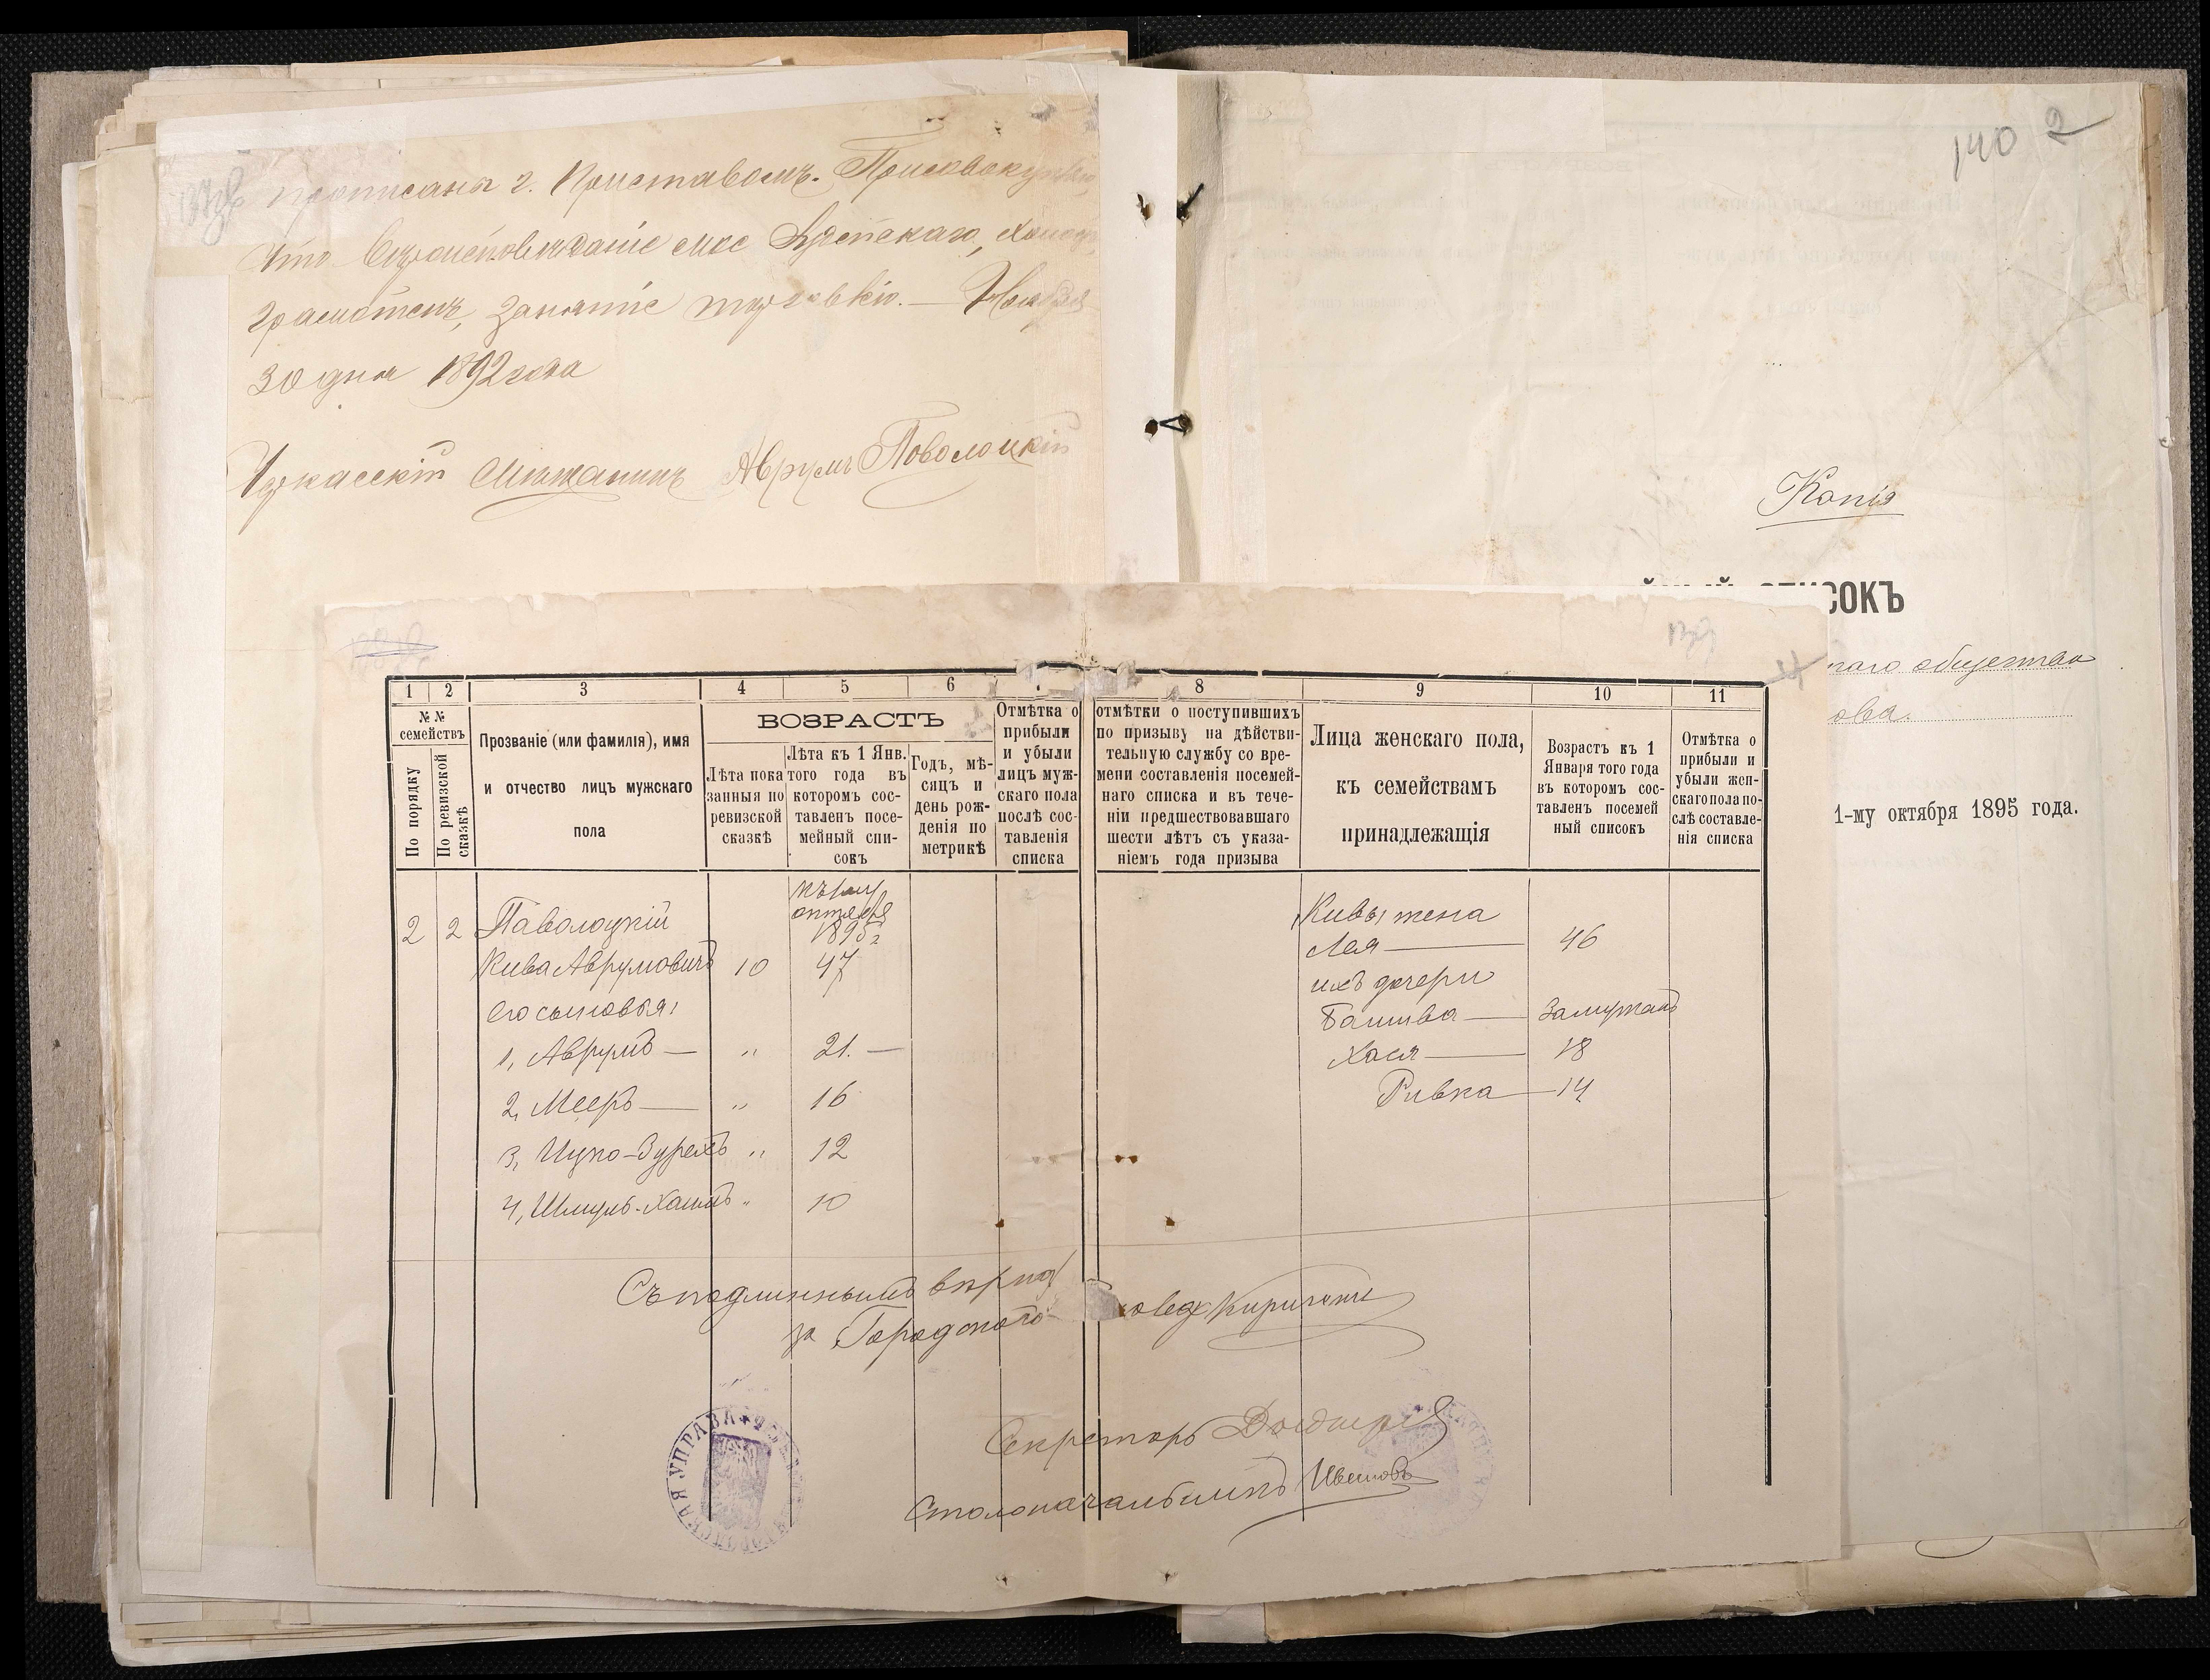 прописана г. Приставомъ. Присовокупляю
что вѣроисповѣданіе мое Іудейскаго, холостъ
грамотенъ, занятіе торговлею. — Ноября
30 дня 1892 года
Черкасскій Мѣщанинъ Аврумъ Поволоцкій
140 2
Копія
СОКЪ
наго общества
ова.
1-му октября 1895 года.
139
1 2 3 4 5 6 7 8 9 10 11
№№ семействъ
По порядку
По ревизской сказкѣ
Прозваніе (или фамилія), имя
и отчество лицъ мужскаго
пола
ВОЗРАСТЪ
Лѣта пока
занныя по
ревизской
сказкѣ
Лѣта къ 1 Янв.
того года въ
которомъ сос-
тавленъ посе-
мейный спи-
сокъ
Годъ, мѣ-
сяцъ и
день рож-
денія по
метрикѣ
Отмѣтка о
прибыли
и убыли
лицъ муж-
скаго пола
послѣ сос-
тавленія
списка
отмѣтки о поступившихъ
по призыву на дѣйстви-
тельную службу со вре-
мени составленія посемей-
наго списка и въ тече-
ніи предшествовавшаго
шести лѣтъ съ указа-
ніемъ года призыва
Лица женскаго пола,
къ семействамъ
принадлежащія
Возрастъ къ 1
Января того года
въ которомъ сос-
тавленъ посемей
ный списокъ
Отмѣтка о
прибыли и
убыли жен-
скаго пола по-
слѣ составле-
нія списка
къ 1му
октября
1895 г.
2 2 Паволоцкій
Кива Аврумовичъ 10 47
его сыновья:
1, Аврумъ — " 21. —
2, Мееръ — " 16
3, Ицко-Зурехъ " 12
4, Шмуль-Хаимъ " 10
Кивы жена
Лея — 46
ихъ дочери
Башива — Замужемъ
Хася — 18
Ривка — 14
Съ подлиннымъ вѣрно
за Городского
Секретарь
Столоначальникъ Ивановъ
ГОРОДСКАЯ УПРАВА